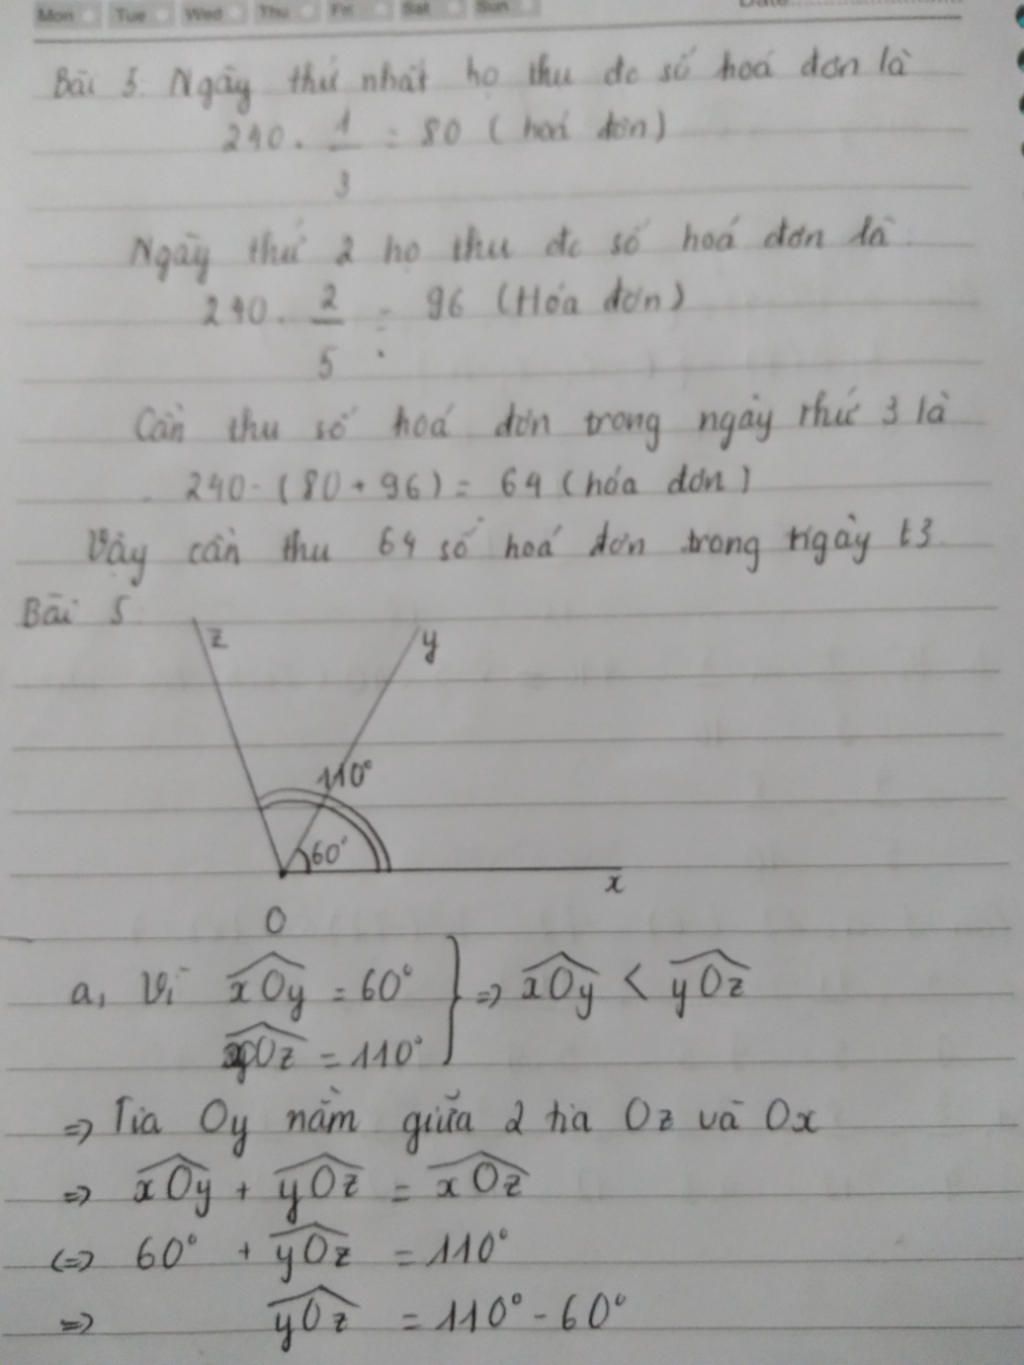 Mon Tue Wed Thu Fri Sat Sun Date
Bài 3. Ngày thứ nhất họ thu đc số hoá đơn là
240 . 1/3 = 80 (hoá đơn)
Ngày thứ 2 họ thu đc số hoá đơn là
240 . 2/5 = 96 (Hóa đơn)
Cần thu số hoá đơn trong ngày thứ 3 là
240 - (80 + 96) = 64 (hóa đơn)
Vậy cần thu 64 số hoá đơn trong ngày t3
Bài 5
z y
110°
60°
x
O
a, Vì xOy = 60° } => xOy < yOz
xOz = 110°
=> Tia Oy nằm giữa 2 tia Oz và Ox
=> xOy + yOz = xOz
<=> 60° + yOz = 110°
=> yOz = 110° - 60°